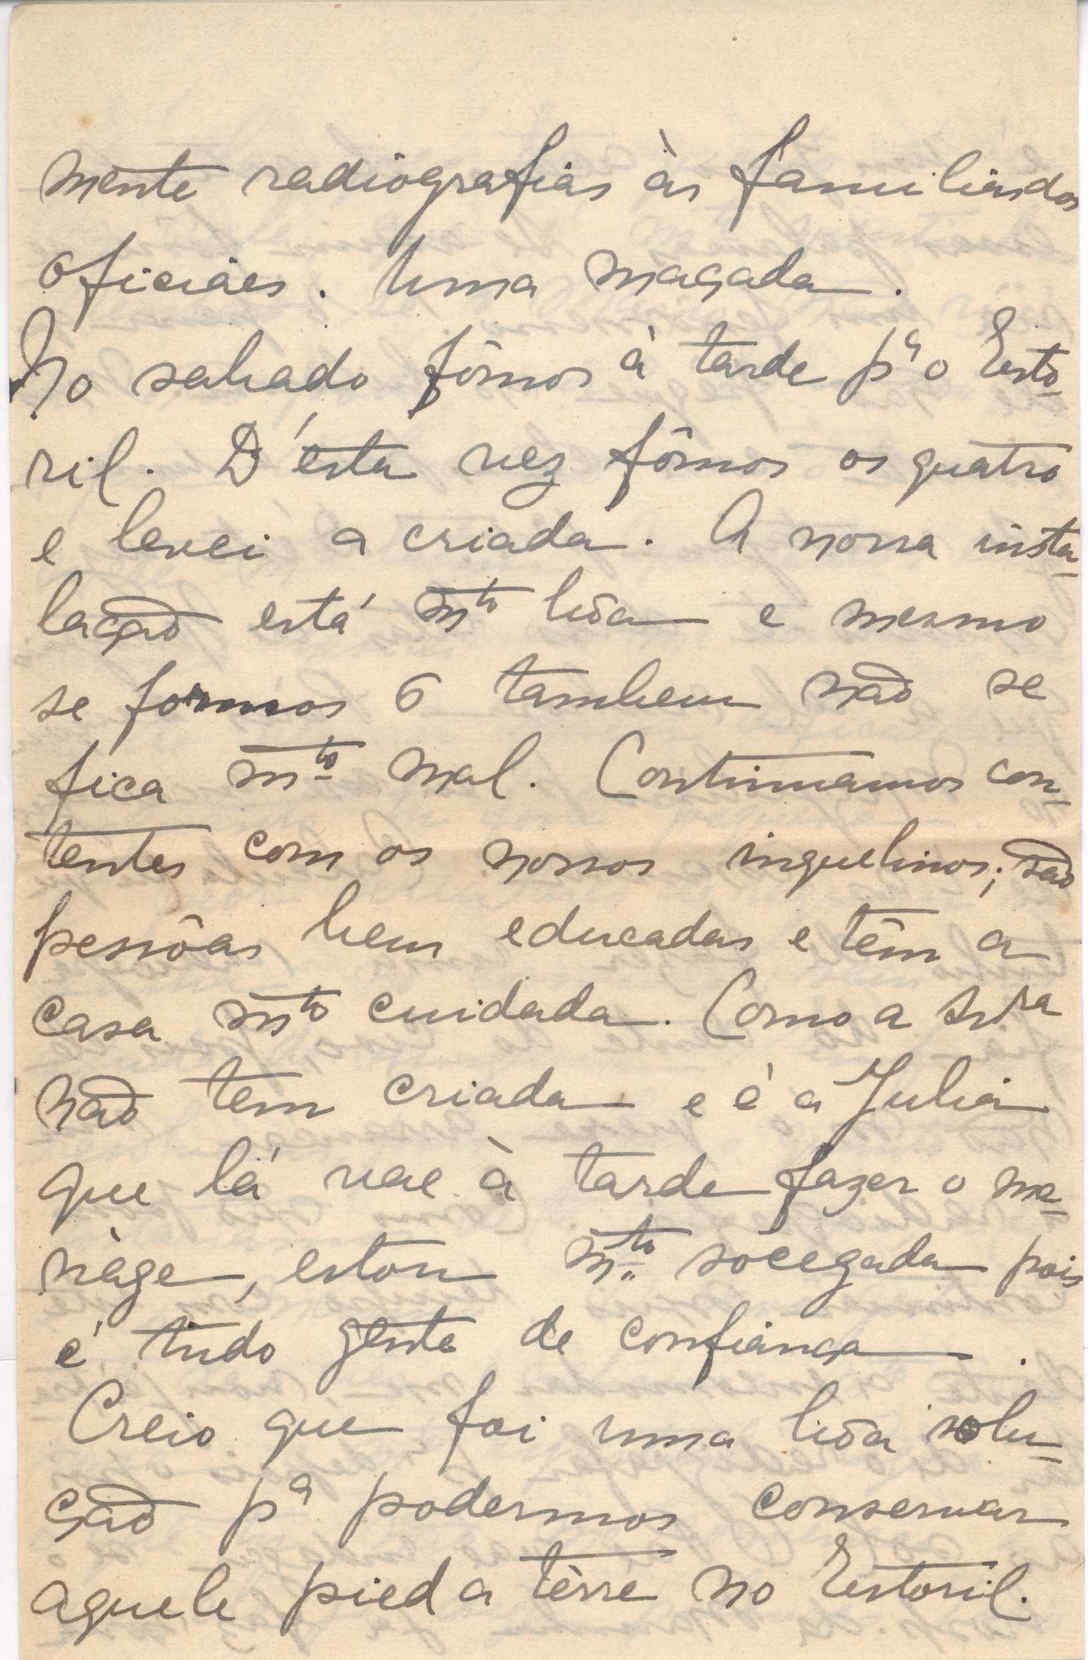 mente radiografias às familias dos
oficiàes. Uma maçada.
No sabado fômos à tarde pª o Esto-
ril. D'ésta vez fômos os quatro
e levei a criada. A nossa insta-
lação está mto bôa e mesmo
se formos 6 tambem não se
fica mto mal. Continuamos con-
tentes com os nossos inquelinos; são
pessôas bem educadas e têm a
casa mto cuidada. Como a Snra
não tem criada e é a Julia
que lá vae à tarde fazer o me-
nàge, estou mto socegada pois
é tudo gente de confiança.
Creio que foi uma bôa solu-
ção pª podermos conservar
aquele pied a tèrre no Estoril.